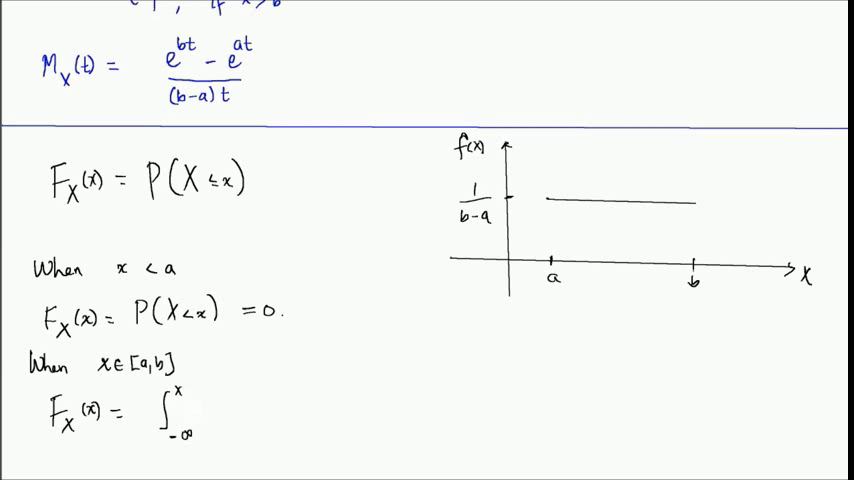 1, if x > b
M_X(t) = \frac{e^{bt} - e^{at}}{(b-a)t}
F_X(x) = P(X ≤ x)
When x < a
F_X(x) = P(X < x) = 0.
When x ∈ [a,b]
F_X(x) = ∫_{-∞}^{x}
f(x)
\frac{1}{b-a}
a
b
X